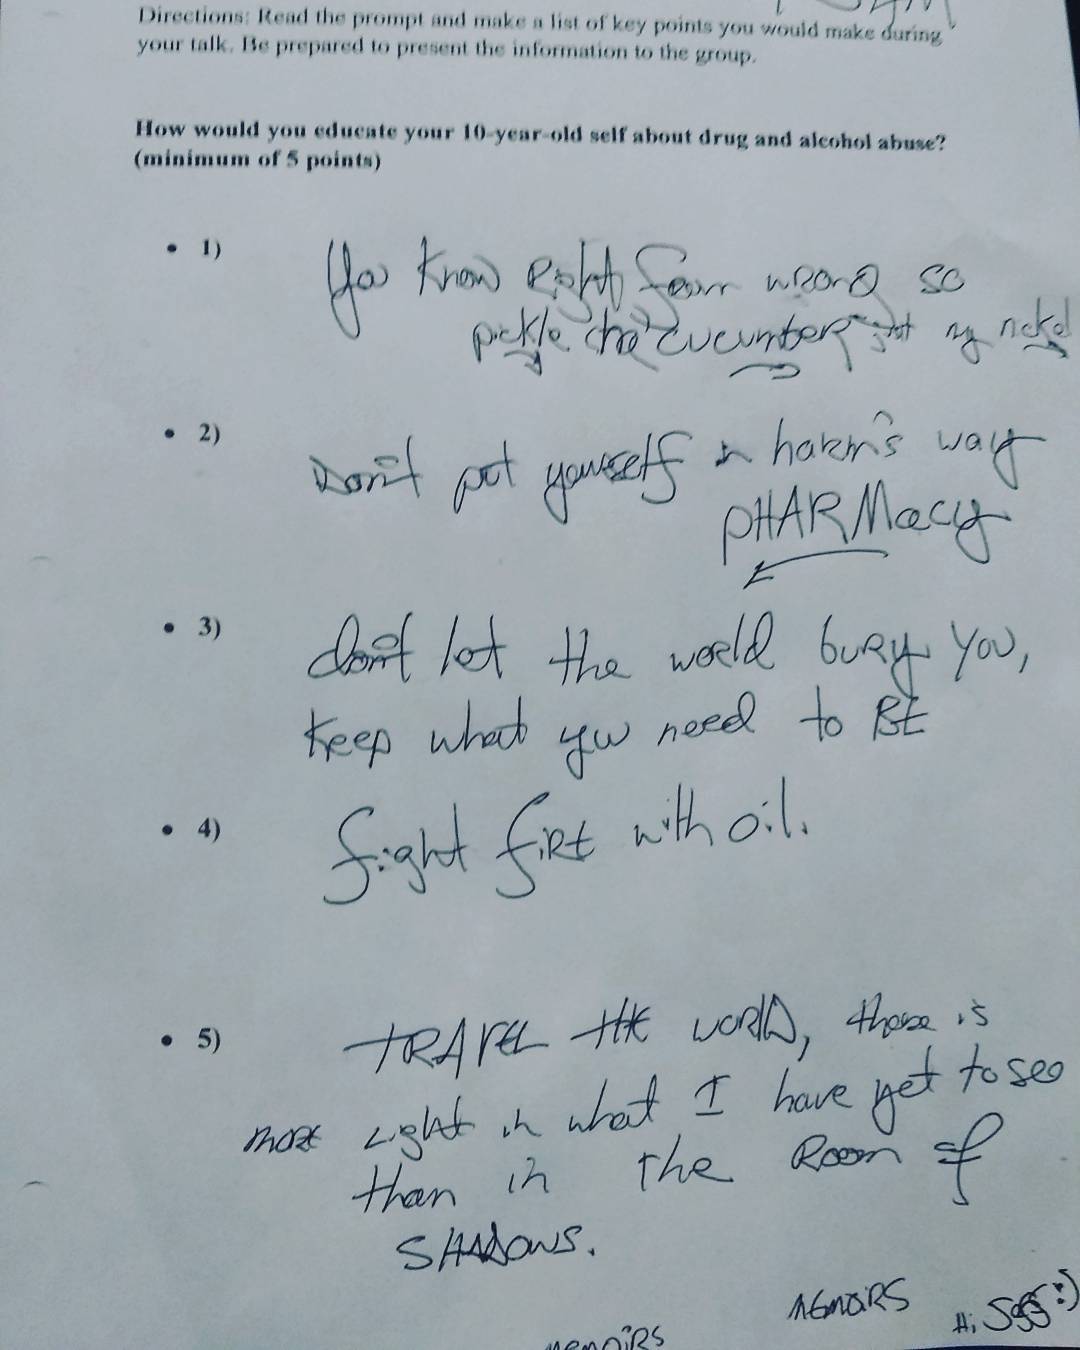 Directions: Read the prompt and make a list of key points you would make during
your talk. Be prepared to present the information to the group.
How would you educate your 10-year-old self about drug and alcohol abuse?
(minimum of 5 points)
• 1) You know Right from wrong so
pickle the cucumber not my nickel
• 2) Don't put yourself in harm's way
pHARMacy
• 3) don't let the world bury you,
keep what you need to BE
• 4) fight fire with oil.
• 5) TRAVEL THE WORLD, there is
more Light in what I have yet to see
than in the Room of
SHADOWS.
MEMOIRS
Hi :)
MEMOIRS